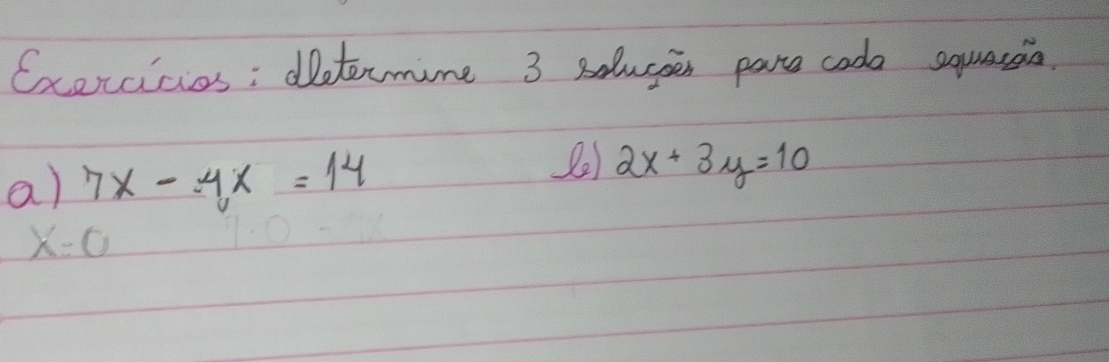 Exercícios: determine 3 soluções para cada equação.
a) 7x - 4x = 14 b) 2x + 3y = 10
x=0 7.0 -